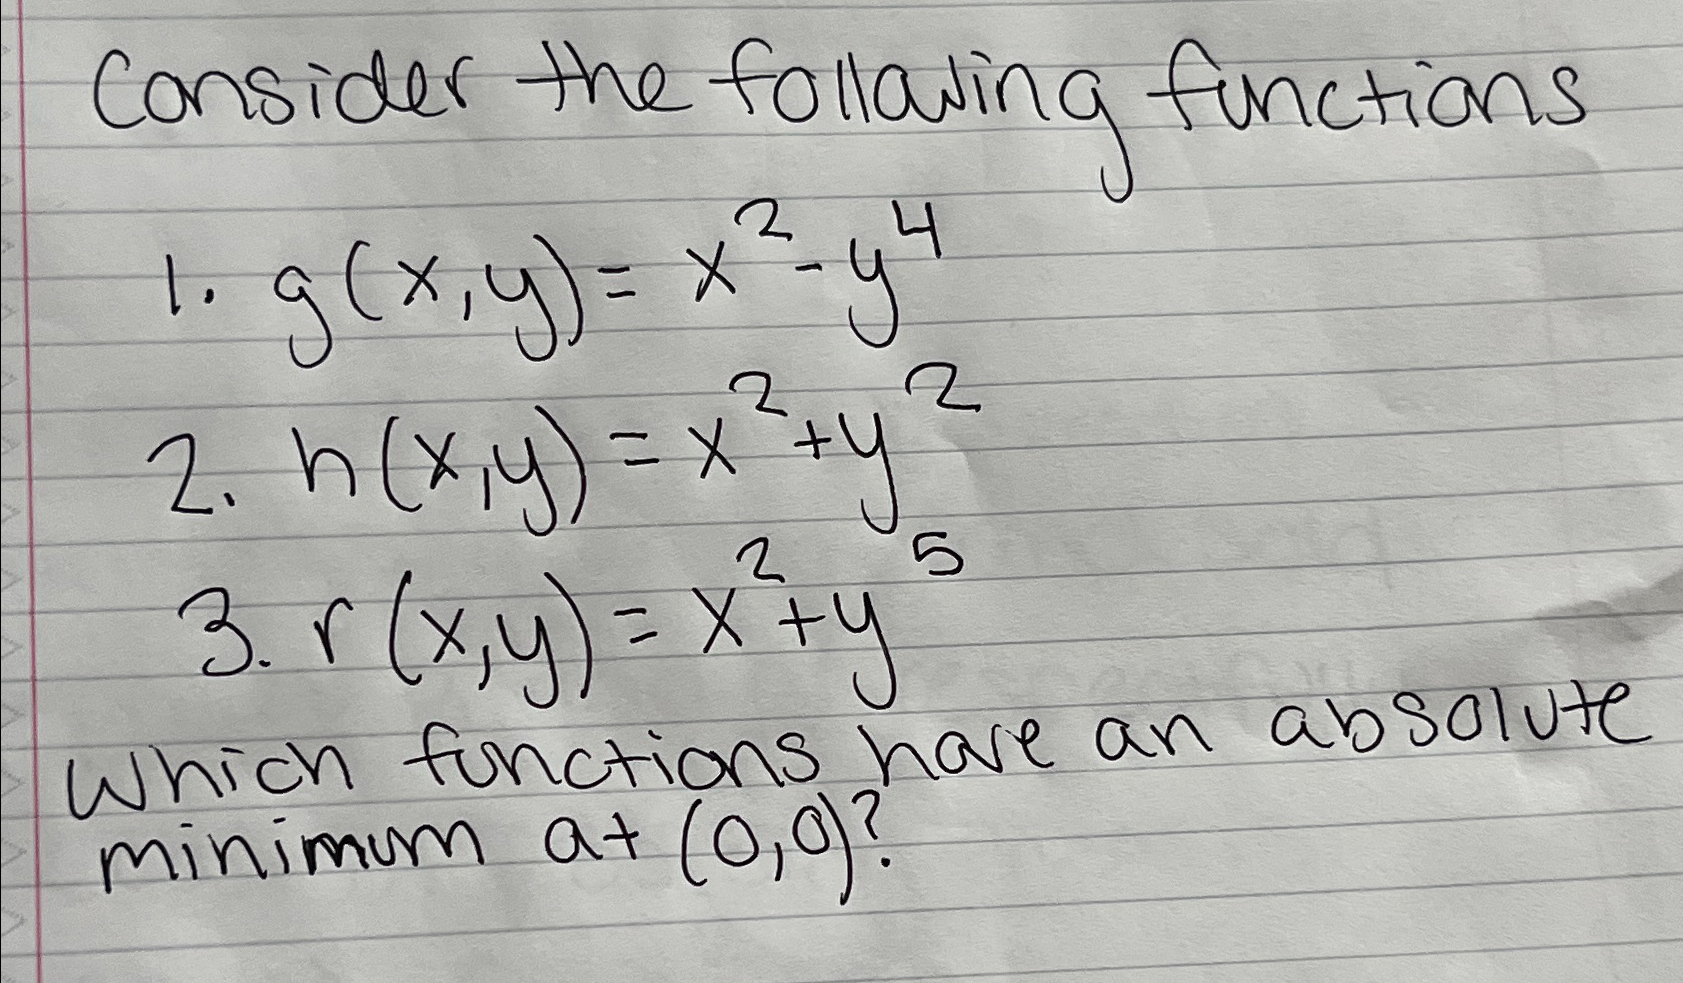 Consider the following functions
1. g(x,y) = x² - y⁴
2. h(x,y) = x² + y²
3. r(x,y) = x² + y⁵
Which functions have an absolute
minimum at (0,0)?